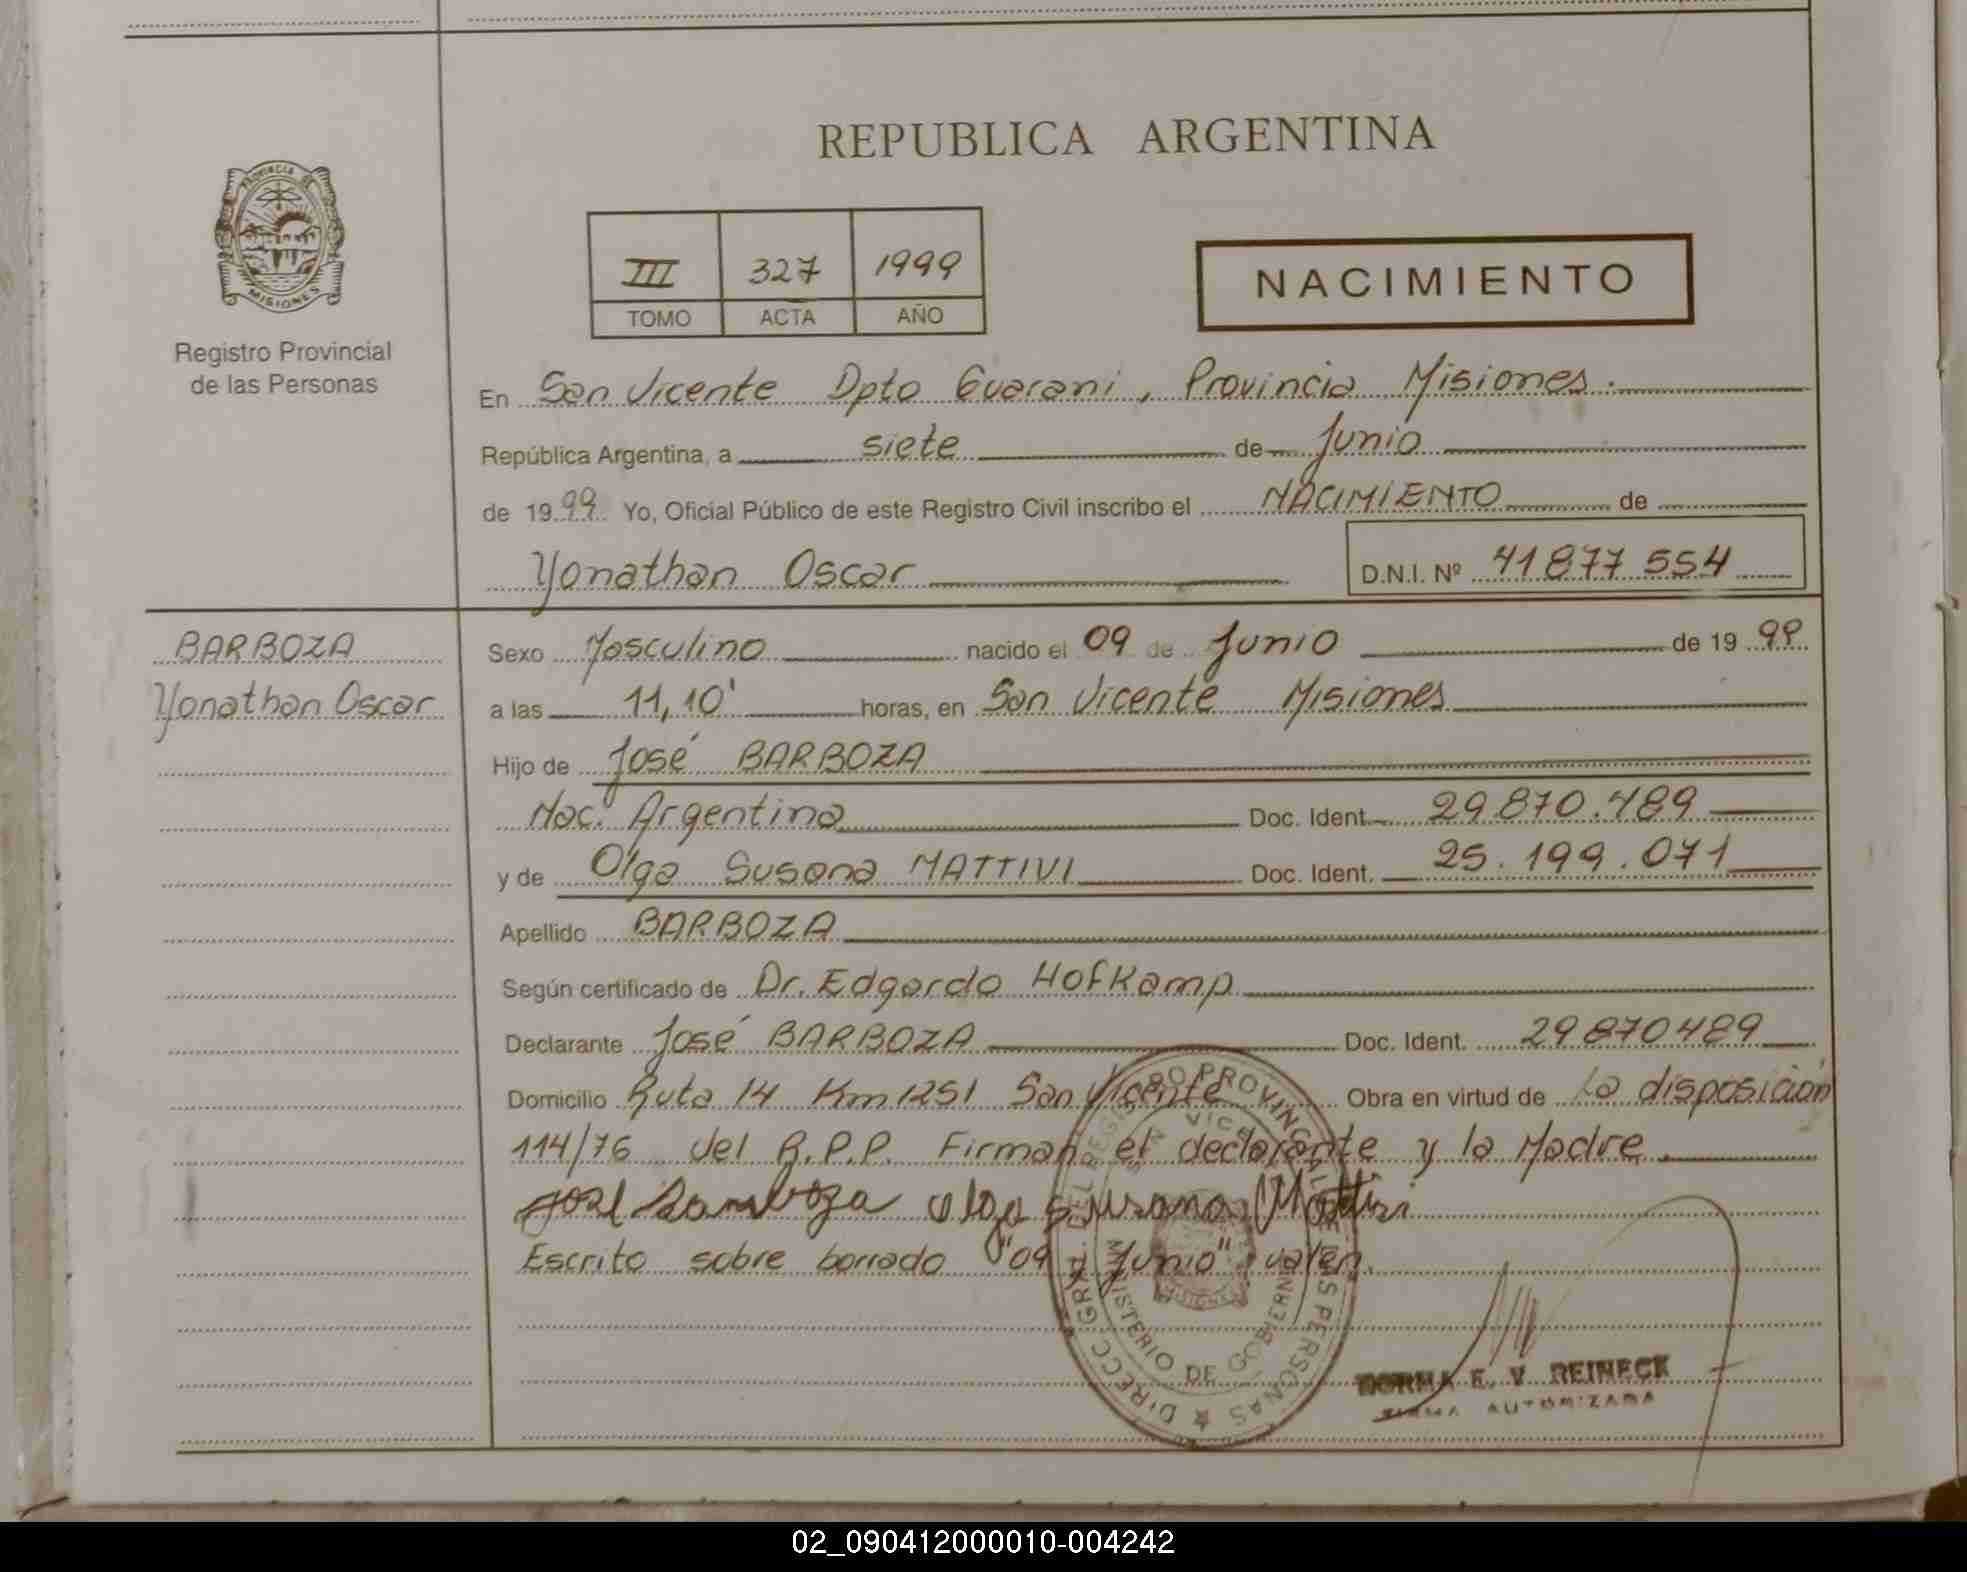 REPUBLICA ARGENTINA
PROVINCIA DE
MISIONES
Registro Provincial
de las Personas
III 327 1999
TOMO ACTA AÑO
NACIMIENTO
En San Vicente Dpto Guarani, Provincia Misiones.
República Argentina, a siete de Junio
de 1999 Yo, Oficial Público de este Registro Civil inscribo el NACIMIENTO de
Yonathan Oscar D.N.I. Nº 41877554
BARBOZA
Yonathan Oscar
Sexo Masculino nacido el 09 de Junio de 1999
a las 11,10' horas, en San Vicente Misiones
Hijo de José BARBOZA
Nac. Argentina Doc. Ident. 29.870.489
y de Olga Susana MATTIVI Doc. Ident. 25.199.071
Apellido BARBOZA
Según certificado de Dr. Edgardo Hofkamp
Declarante José BARBOZA Doc. Ident. 29870489
Domicilio Ruta 14 Km 1251 San Vicente Obra en virtud de la disposición
114/76 del R.P.P. Firman el declarante y la Madre
José Barboza Olga Susana Mattivi
Escrito sobre borrado "09 y Junio" valen.
DIRECC. GRAL. DEL REGISTRO PROVINCIAL DE LAS PERSONAS
SAN VICENTE
MINISTERIO DE GOBIERNO
MISIONES
NORMA E. V. REINECK
FIRMA AUTORIZADA
02_090412000010-004242